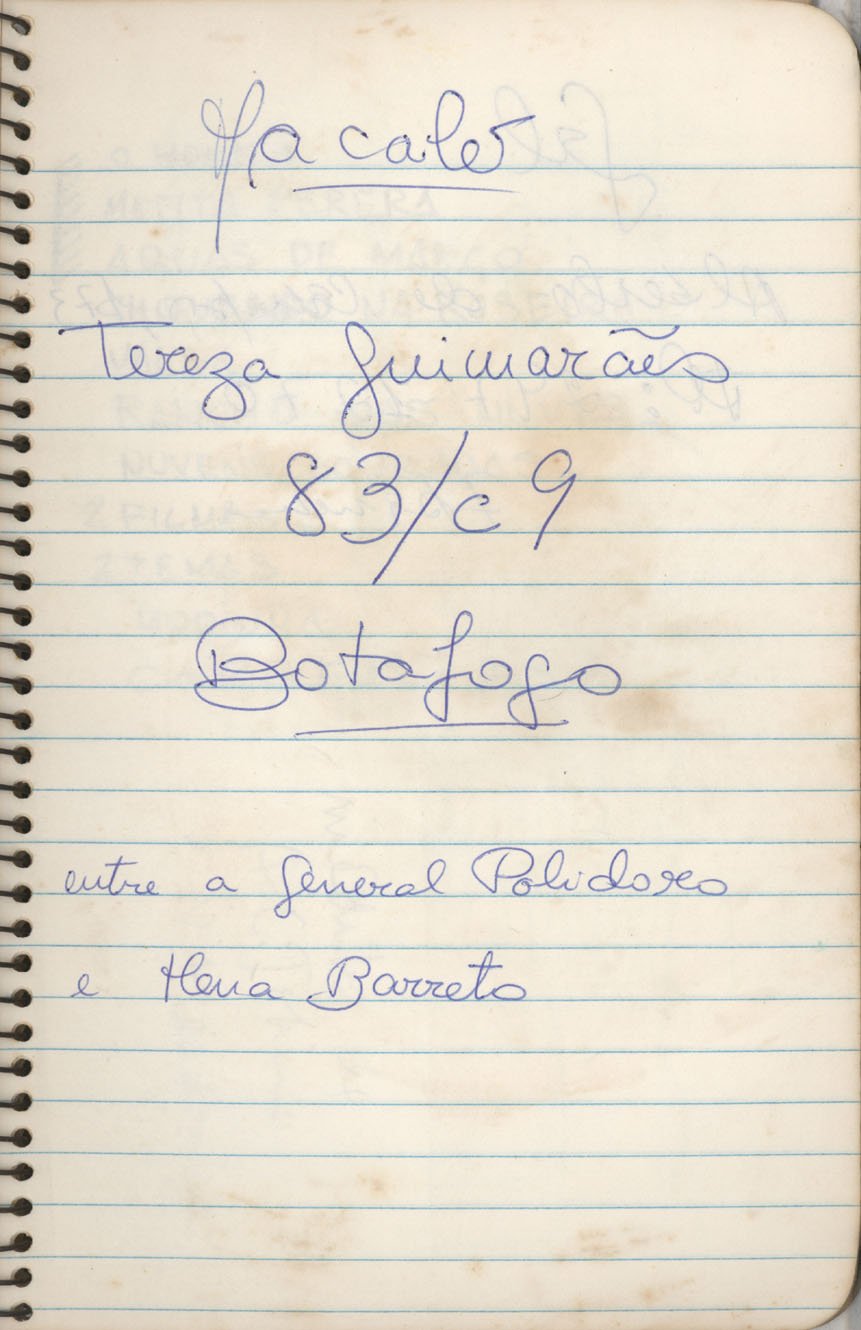 Macalé
Tereza Guimarães
83/c 9
Botafogo
entre a General Polidoro
e Mena Barreto